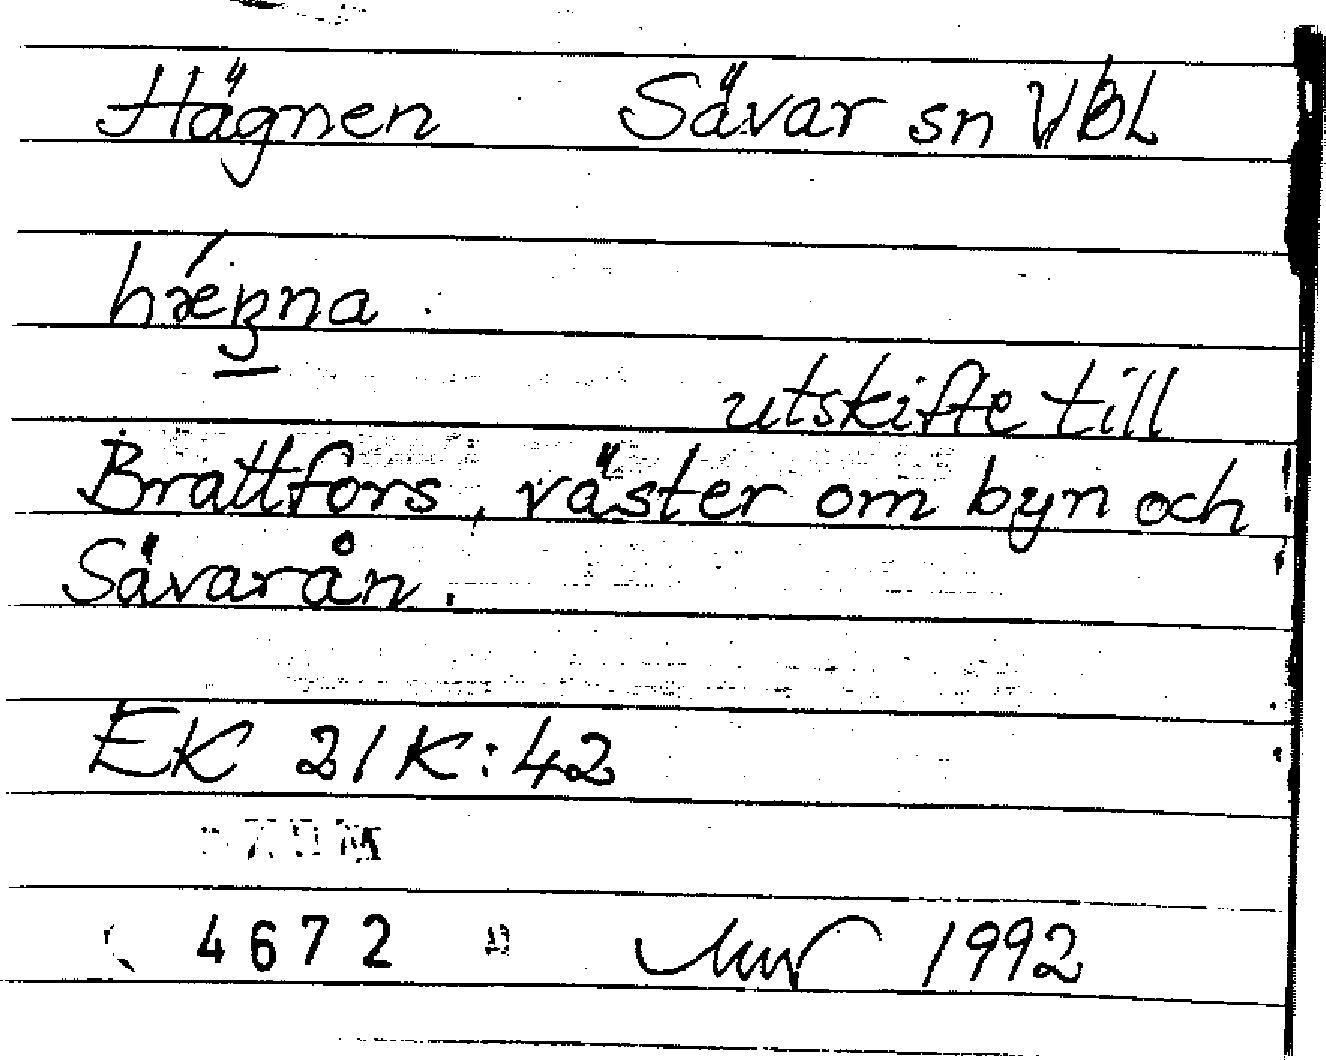 Hägnen Sävar sn Vbl
hǽŋna
utskifte till
Brattfors, väster om byn och
Sävarån.
EK 21K:42
4672 1992